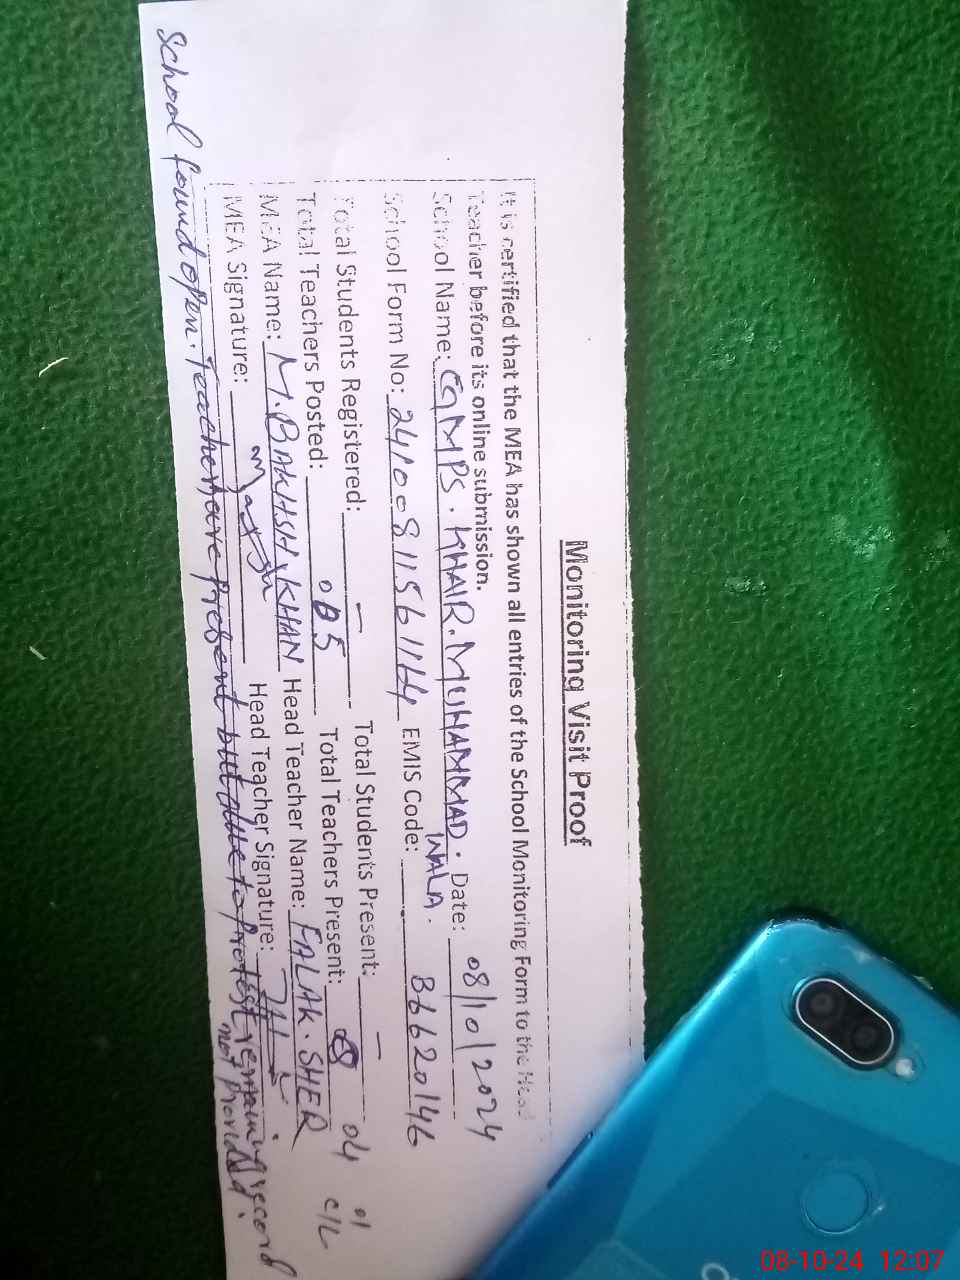 Monitoring Visit Proof
It is certified that the MEA has shown all entries of the School Monitoring Form to the Head
Teacher before its online submission.
School Name: CGMPS. KHAIR. MUHAMMAD. WALA. Date: 08/10/2024
School Form No: 2410081156 EMIS Code: B6620146
Total Students Registered: — Total Students Present: —
Total Teachers Posted: 05 Total Teachers Present: 04 01 C/L
MEA Name: M. BAKHSH KHAN Head Teacher Name: FALAK. SHER
MEA Signature: Head Teacher Signature:
School found open. Teachers are present but due to protest remaining record
not provided.
08-10-24 12:07